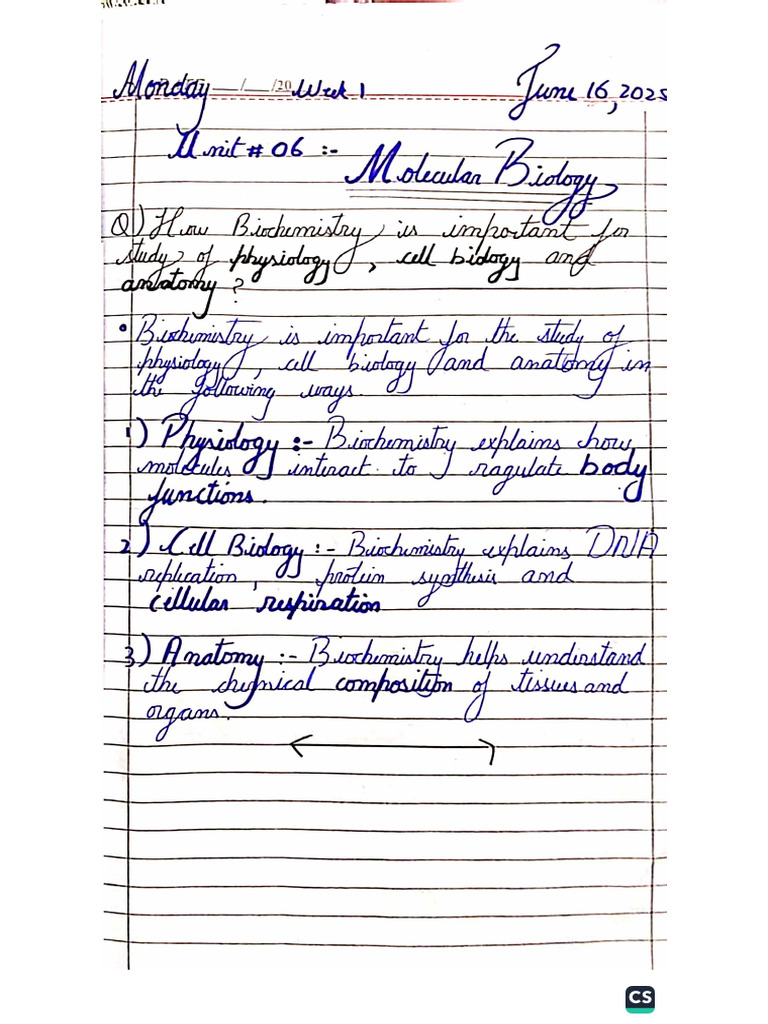 Monday __/__/20 Week 1 June 16, 2025
Unit # 06 :-
Molecular Biology
Q) How Biochemistry is important for
study of physiology, cell biology and
anatomy?
• Biochemistry is important for the study of
physiology, cell biology and anatomy in
the following ways.
1) Physiology :- Biochemistry explains how
molecules interact to ragulate body
functions.
2) Cell Biology :- Biochemistry explains DNA
replication, protein synthesis and
cellular respiration
3) Anatomy :- Biochemistry helps understand
the chemical composition of tissues and
organs.
CS